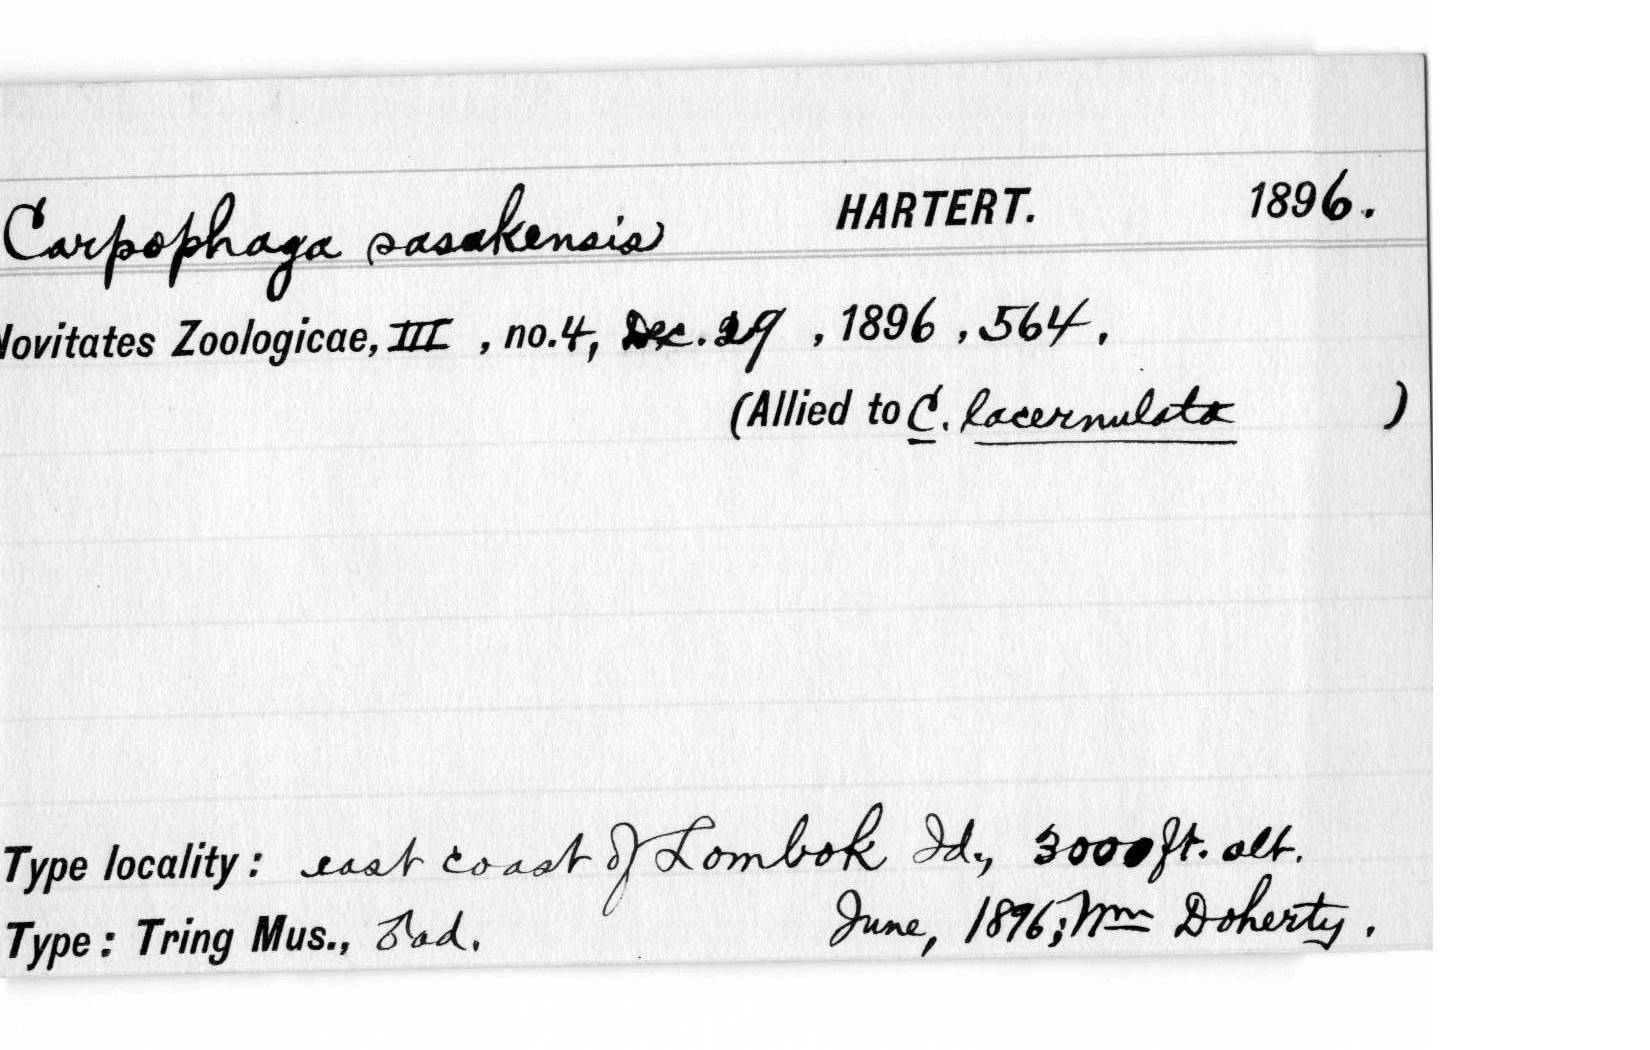 Carpophaga sasakensis HARTERT. 1896.
Novitates Zoologicae, III, no. 4, Dec. 29, 1896, 564.
(Allied to C. lacernulata )
Type locality: east coast of Lombok Id., 3000 ft. alt.
June, 1896; Wm Doherty.
Type: Tring Mus., ad.